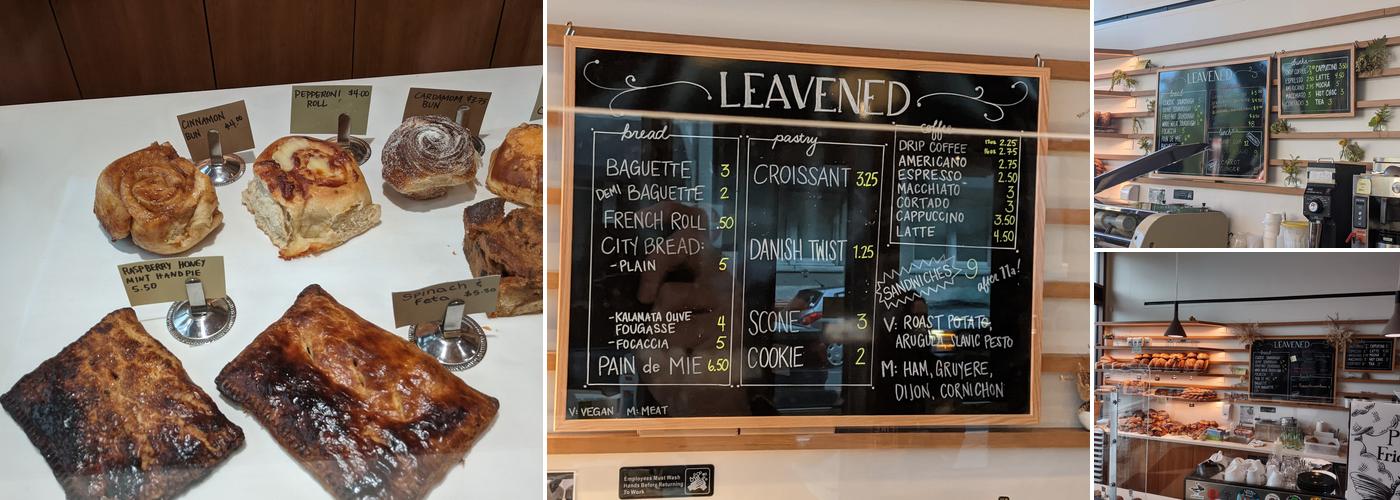 CINNAMON
BUN $4.00
PEPPERONI $4.00
ROLL
CARDAMOM $3.75
BUN
RASPBERRY HONEY
MINT HANDPIE
5.50
Spinach &
Feta $5.50
LEAVENED
bread
BAGUETTE 3
DEMI BAGUETTE 2
FRENCH ROLL .50
CITY BREAD:
-PLAIN 5
-KALAMATA OLIVE
FOUGASSE 4
-FOCACCIA 5
PAIN de MIE 6.50
V: VEGAN M: MEAT
pastry
CROISSANT 3.25
DANISH TWIST 1.25
SCONE 3
COOKIE 2
coffee
DRIP COFFEE 12oz 2.25
16oz 2.75
AMERICANO 2.75
ESPRESSO 2.50
MACCHIATO 3
CORTADO 3
CAPPUCCINO 3.50
LATTE 4.50
SANDWICHES 9
after 11a!
V: ROAST POTATO,
ARUGULA, SLAVIC PESTO
M: HAM, GRUYERE,
DIJON, CORNICHON
Employees Must Wash
Hands Before Returning
To Work
LEAVENED
bread
drinks
CAPPUCCINO 3.50
LATTE 4.50
MOCHA 5
HOT CHOC 3
TEA 3
LEAVENED